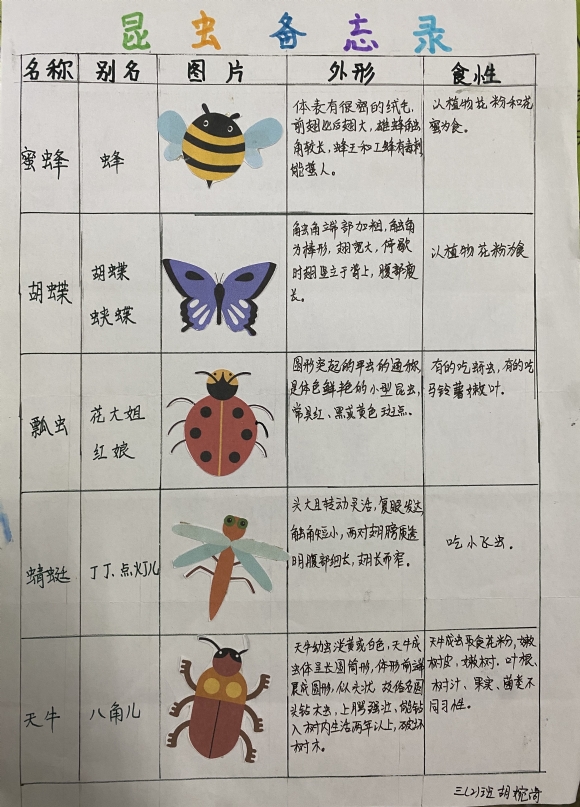 昆虫备忘录
名称 别名 图片 外形 食性
蜜蜂
蜂
体表有很密的绒毛,
前翅比后翅大,雄蜂触
角较长,蜂王和工蜂有毒刺
能蜇人。
以植物花粉和花
蜜为食。
胡蝶
胡蝶
蛱蝶
触角端部加粗,触角
为棒形,翅宽大,停歇
时翅竖立于背上,腹部瘦
长。
以植物花粉为食
瓢虫
花大姐
红娘
圆形突起的甲虫的通称,
是体色鲜艳的小型昆虫,
常具红、黑或黄色斑点。
有的吃蚜虫,有的吃
马铃薯嫩叶。
蜻蜓
丁丁、点灯儿
头大且转动灵活,复眼发达,
触角短小,两对翅膀质透
明腹部细长,翅长而窄。
吃小飞虫。
天牛
八角儿
天牛幼虫淡黄或白色,天牛成
虫体呈长圆筒形,体形前端
展成圆形,似头状,故俗名圆
头钻木虫,上腭强壮,能钻
入树内生活两年以上,破坏
树木。
天牛成虫取食花粉,嫩
树皮,嫩树.叶根、
树汁、果实、菌类不
同习性。
三(2)班 胡婉